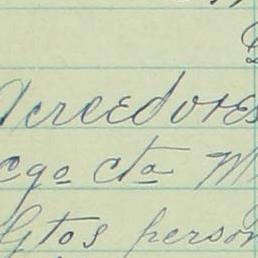 Acreedores
cgo cta M
Gtos person